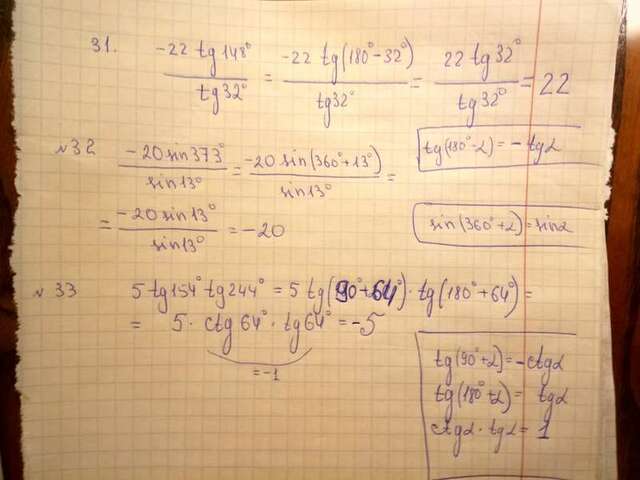 31. -22 tg 148° / tg 32° = -22 tg(180° - 32°) / tg 32° = 22 tg 32° / tg 32° = 22
tg(180° - α) = -tg α
№32 -20 sin 373° / sin 13° = -20 sin(360° + 13°) / sin 13° =
= -20 sin 13° / sin 13° = -20
sin(360° + α) = sin α
№33 5 tg 154° tg 244° = 5 tg(90° + 64°) · tg(180° + 64°) =
= 5 · ctg 64° · tg 64° = -5
= -1
tg(90° + α) = -ctg α
tg(180° + α) = tg α
ctg α · tg α = 1